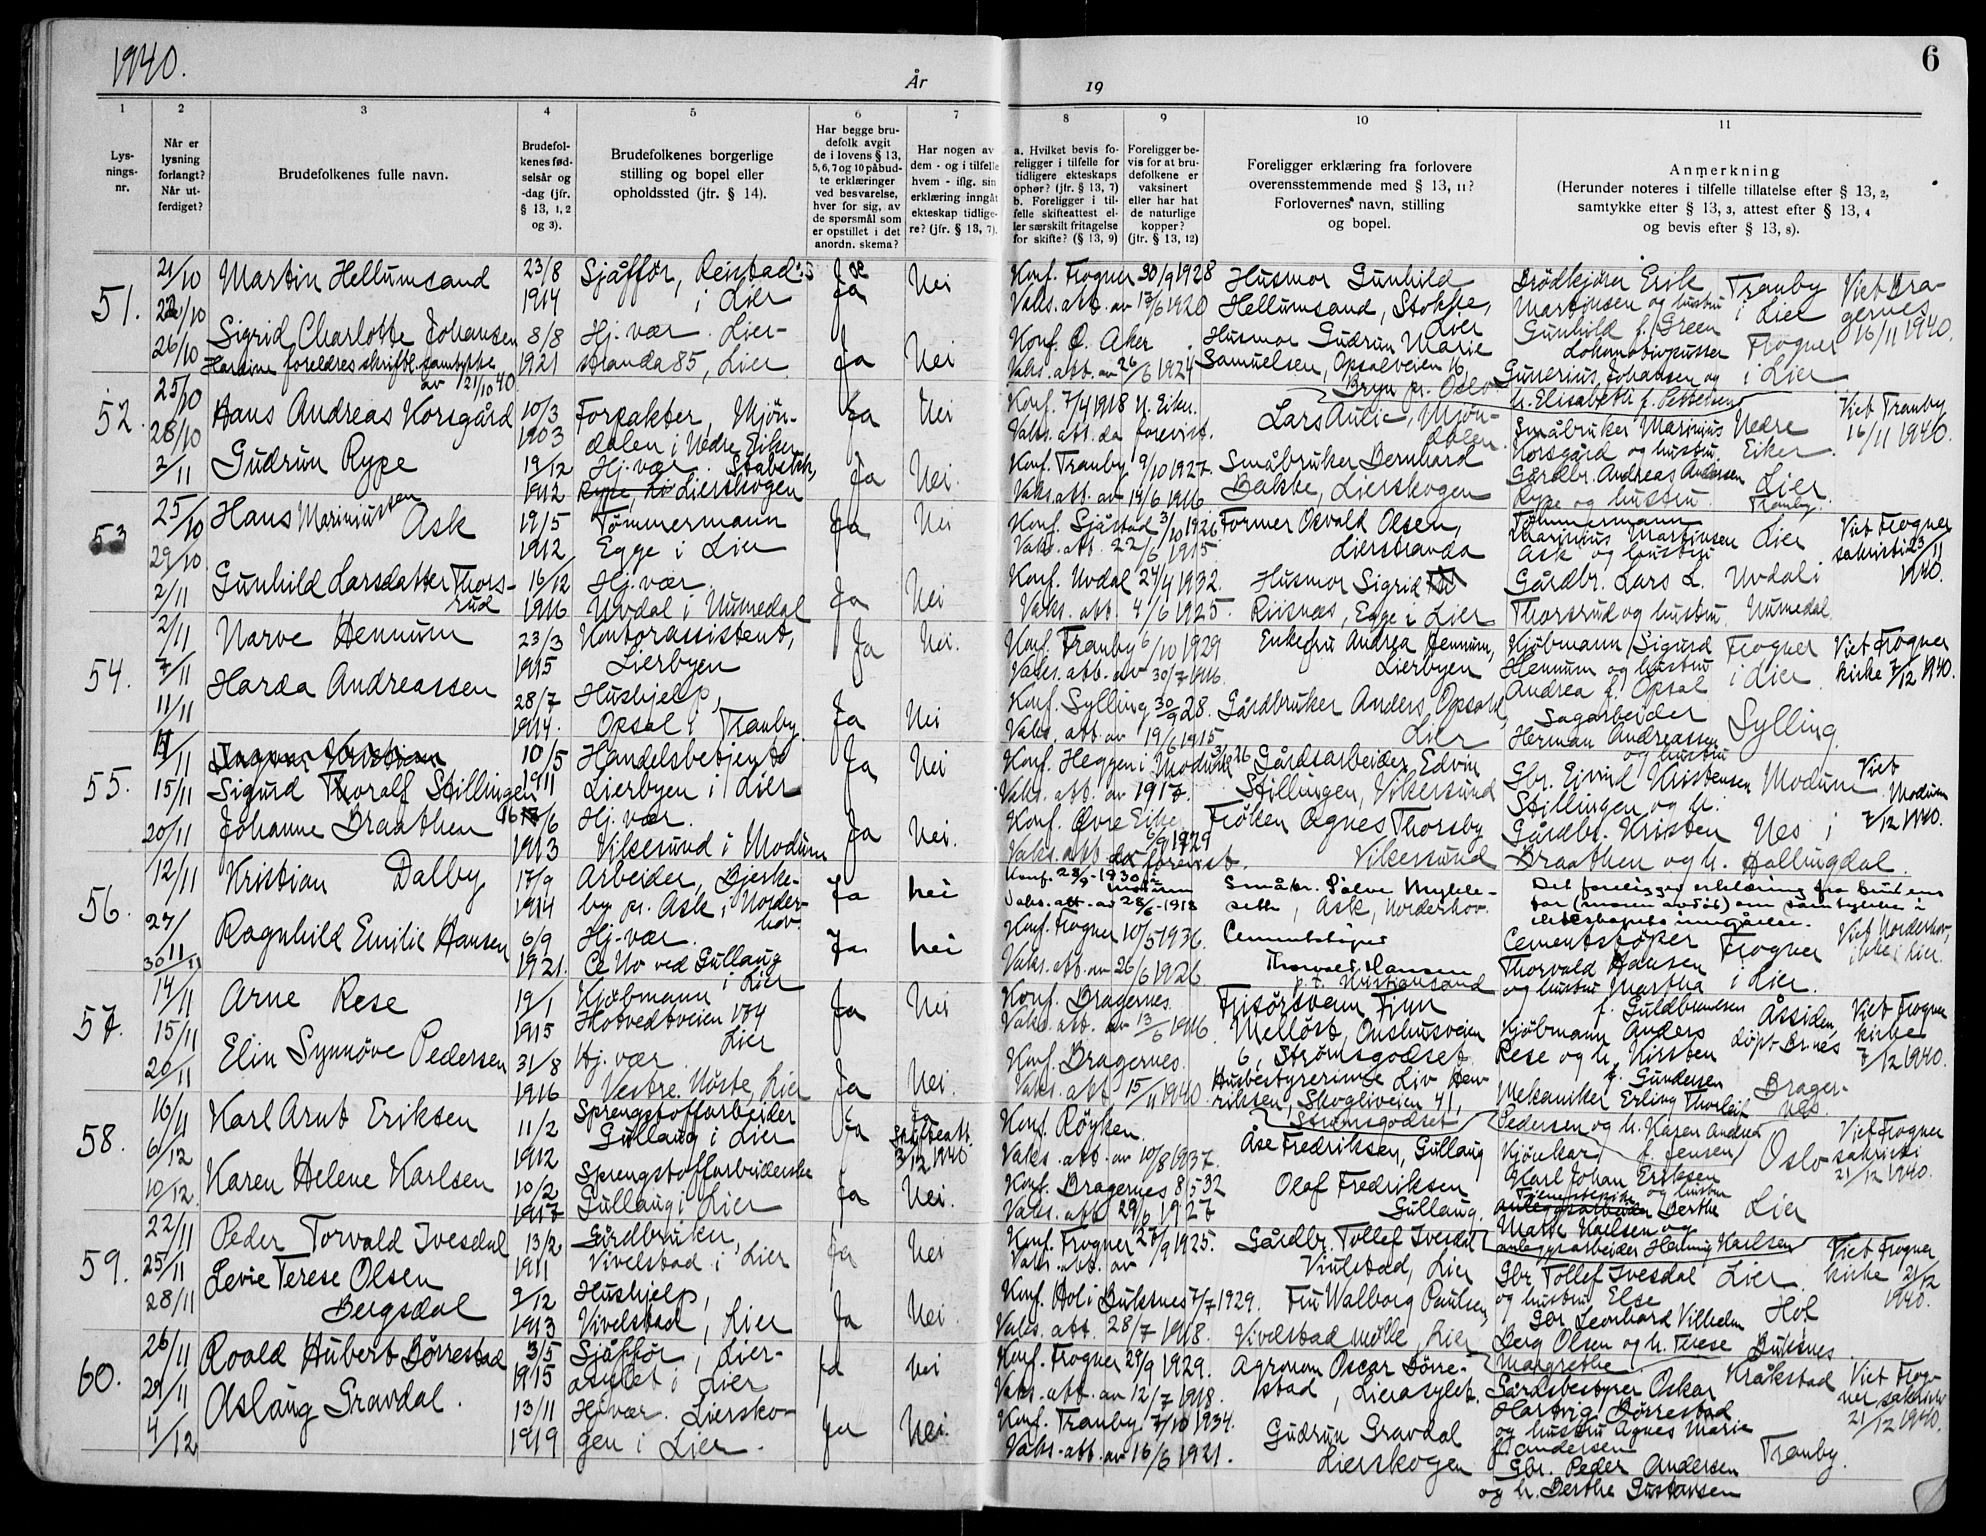 1940.
År
19
6
1
2
3
4
5
6
7
8
9
10
11
Lys-
nings-
nr.
Når er
lysning
forlangt?
Når ut-
ferdiget?
Brudefolkenes fulle navn.
Brudefol-
kenes fød-
selsår og
-dag (jfr.
§ 13, 1, 2
og 3).
Brudefolkenes borgerlige
stilling og bopel eller
opholdssted (jfr. § 14).
Har begge bru-
defolk avgit
de i lovens § 13,
5, 6, 7 og 10 påbud-
te erklæringer
ved besvarelse,
hver for sig, av
de spørsmål som
er opstillet i det
anordn. skema?
Har nogen av
dem - og i tilfelle
hvem - iflg. sin
erklæring inngåt
ekteskap tidlige-
re? (jfr. § 13, 7).
a. Hvilket bevis fo-
religger i tilfelle for
tidligere ekteskaps
ophør? (jfr. § 13, 7)
b. Foreligger i til-
felle skifteattest el-
ler særskilt fritagelse
for skifte? (§ 13, 9)
Foreligger be-
vis for at bru-
defolkene er
vaksinert
eller har hat
de naturlige
kopper?
(jfr. § 13, 12)
Foreligger erklæring fra forlovere
overensstemmende med § 13, 11?
Forlovernes navn, stilling
og bopel.
Anmerkning
(Herunder noteres i tilfelle tillatelse efter § 13, 2,
samtykke efter § 13, 3, attest efter § 13, 4
og bevis efter § 13, 8).
51.
21/10
22/10
26/10
Martin Hellumsand
23/8
1914
Sjåffør, Reistad
i Lier
Ja
Nei
Konf. Frogner 30/9 1928
Vaks. att. av 17/6 1920
Husmor Gunhild
Hellumsand, Stokke,
Lier
Brødkjører Erik
Martinsen og hustru
Gunhild f. Green
Tranby
i Lier
Viet Bra-
gernes
16/11 1940.
Sigrid Charlotte Johansen
Har sine foreldres skriftl. samtykke
av 21/10 40.
8/8
1921
Hj. vær. Lier-
stranda 85, Lier
Ja
Nei
Konf. Ø. Aker
Vaks. att. av 26/6 1924
Husmor Gudrun Marie
Samuelsen, Opsalveien 16,
Bryn pr. Oslo
Lokomotivpusser
Gunerius Johansen og
h. Elisabeth f. Pettersen
Frogner
i Lier
52.
25/10
28/10
2/11
Hans Andreas Korsgård
10/3
1903
Forpakter, Mjøn-
dalen i Nedre Eiker
Ja
Nei
Konf. 7/4 1918 N. Eiker
Vaks. att. da forevist.
Lars Aulie, Mjøn-
dalen
Småbruker Marinius
Korsgård og hustru
Nedre
Eiker
Viet Tranby
16/11 1940.
Gudrun Rype
19/12
1912
Hj. vær. Stabekk,
Lierskogen
Ja
Nei.
Konf. Tranby 9/10 1927.
Vaks. att. av 14/6 1916
Småbruker Bernhard
Bakke, Lierskogen
Gårdbr. Andreas Andersen
Rype og hustru
Lier
Tranby.
53
25/10
29/10
2/11
Hans Mariniussen Ask
19/5
1912
Tømmermann
Egge i Lier
Ja
Nei
Konf. Sjåstad 3/10 1926.
Vaks. att. 22/6 1915
Former Osvald Olsen,
Lierstranda
Tømmermann
Marinius Martinsen
Ask og hustru
Lier
Viet Frogner
sakristi 23/11
1940.
Gunhild Larsdatter Thors-
rud
16/12
1916
Hj. vær.
Uvdal i Numedal
Ja
Nei
Konf. Uvdal 24/4 1932.
Vaks. att. 4/6 1925.
Husmor Sigrid
Riisnæs, Egge i Lier
Gårdbr. Lars L.
Thorsrud og hustru
Uvdal i
Numedal
54.
2/11
7/11
11/11
Narve Hennum
23/3
1915
Kontorassistent,
Lierbyen
Ja
Nei.
Konf. Tranby 6/10 1929
Vaks. att. av 30/7 1916.
Enkefru Andrea Hennum,
Lierbyen
Kjøbmann Sigurd
Hennum og hustru
Andrea f. Opsal
Frogner
i Lier
Viet Frogner
kirke 7/12 1940.
Harda Andreassen
28/7
1914.
Hushjelp,
Opsal i Tranby
Ja
Nei
Konf. Sylling 30/9 28.
Vaks. att. av 19/6 1915
Gårdbruker Anders Opsand,
Lier
Sagarbeider
Herman Andreassen
og hustru
Sylling
55.
11/11
15/11
20/11
Sigurd Thoralf Stillingen
10/5
1911
Handelsbetjent
Lierbyen i Lier
Ja
Nei
Konf. Heggen i Modum 26
Vaks. att. av 1917.
Gårdsarbeider Edvin
Stillingen, Vikersund
Gbr. Eivind Kristensen
Stillingen og h.
Modum
Viet
Modum
7/12 1940.
Johanne Braathen
16/6
1913
Hj. vær.
Vikersund i Modum
Ja
Nei.
Konf. Øvre Eiker
6/9 1929
Vaks. att. da forevist.
Frøken Agnes Thorsby
Vikersund
Gårdbr. Kristen
Braathen og h.
Nes i
Hallingdal.
56.
12/11
27/11
30/11
Kristian Dalby
17/9
1914
Arbeider, Bjerke-
by pr. Ask, Norder-
hov.
Ja
Nei
Konf. 28/9 - 1930 i
Modum
Vaks. att. av 28/6 - 1918
Småbr. Sølve Mykle-
seth, Ask, Norderhov.
Det foreligger erklæring fra brudens
far om samtykke i
ekteskapets inngåelse.
Viet Norderhov,
ikke i Lier.
Ragnhild Emilie Hansen
6/9
1921.
Hj. vær.
Ce No ved Gullaug
i Lier
Ja
Nei
Konf. Frogner 10/5 1936.
Vaks. att. av 26/6 1926
Cementstøper
Thorvald Hansen
p.t. Kristiansand
Cementstøper
Thorvald Hansen
og hustru Martha
f. Guldbrandsen
Frogner
i Lier.
57.
14/11
15/11
20/11
Arne Rese
19/1
1915
Kjøbmann
Hotvedtveien 174
Lier
Ja
Nei
Konf. Bragernes
Vaks. att. av 13/6 1916
Frisørsvenn Finn
Melløst, Onshusveien
6, Strømsgodset
Kjøbmann Anders
Rese og h. Kirsten
f. Gundersen
Åssiden,
døpt Br.nes
Viet Frogner
kirke
7/12 1940.
Elin Synnøve Pedersen
31/8
1916
Hj. vær
Vestre Nøste, Lier
Ja
Nei.
Konf. Bragernes.
Vaks. att. 15/11 1940.
Husbestyrerinne Liv Hen-
riksen, Skogliveien 41,
Strømsgodset
Mekaniker Erling Thorleif
Pedersen og h. Karen Andrea
f. Jensen
Brager-
nes.
58.
16/11
6/12
10/12.
Karl Arnt Eriksen
11/2
1912
Sprengstoffarbeider
Gullaug i Lier
Ja
Ja
Skifteatt.
2/12 1940
Konf. Røyken.
Vaks. att. av 10/8 1937.
Åse Fredriksen, Gullaug
Kjørekar
Karl Johan Eriksen
og hustru
Oslo
Viet Frogner
sakristi
21/12 1940.
Karen Helene Karlsen
10/2
1917
Sprengstoffarbeiderske
Gullaug i Lier
Ja
Nei.
Konf. Bragernes 8/5 32
Vaks. att. 29/6 1927
Olaf Fredriksen
Gullaug.
Tjenestepike
Berthe
Marie Karlsen og
anleggsarbeider Henning Karlsen
Lier
59.
22/11
25/11
28/11
Peder Torvald Ivesdal
13/2
1911
Gårdbruker,
Vivelstad i Lier
Ja
Nei
Konf. Frogner 27/9 1925.
Vaks. att. av
Gårdbr. Tollef Ivesdal
Viulstad, Lier
Gbr. Tollef Ivesdal
og hustru Else
Lier
Viet Frogner
kirke 21/12
1940.
Levie Terese Olsen
Bergsdal
9/12
1913
Hushjelp,
Vivelstad, Lier
Ja
Nei.
Konf. Hol i Buksnes 7/7 1929.
Vaks. att. 28/7 1918.
Fru Walborg Paulsen,
Vivelstad mølle, Lier
Gbr. Leonhard Vilhelm
Berg Olsen og h. Terese
Margrethe
Hol
Buksnes
60.
26/11
29/11
4/12
Roald Hubert Børrestad
3/5
1915
Sjåffør, Lier-
asylet i Lier
Ja
Nei
Konf. Frogner 29/9 1929.
Vaks. att. av 12/7 1918.
Agronom Oscar Børre-
stad, Lierasylet.
Gårdsbestyrer Oskar
Hartvig Børrestad
og hustru Agnes Marie
f. Andersen
Kråkstad
Viet Frog-
ner sakristi
21/12 1940.
Aslaug Gravdal.
13/11
1919
Hj. vær. Liersko-
gen i Lier.
Ja
Nei.
Konf. Tranby 7/10 1934.
Vaks. att. av 16/6 1921.
Gudrun Gravdal
Lierskogen
Gbr. Peder Andersen
og h. Berthe Gustavsen
Tranby.